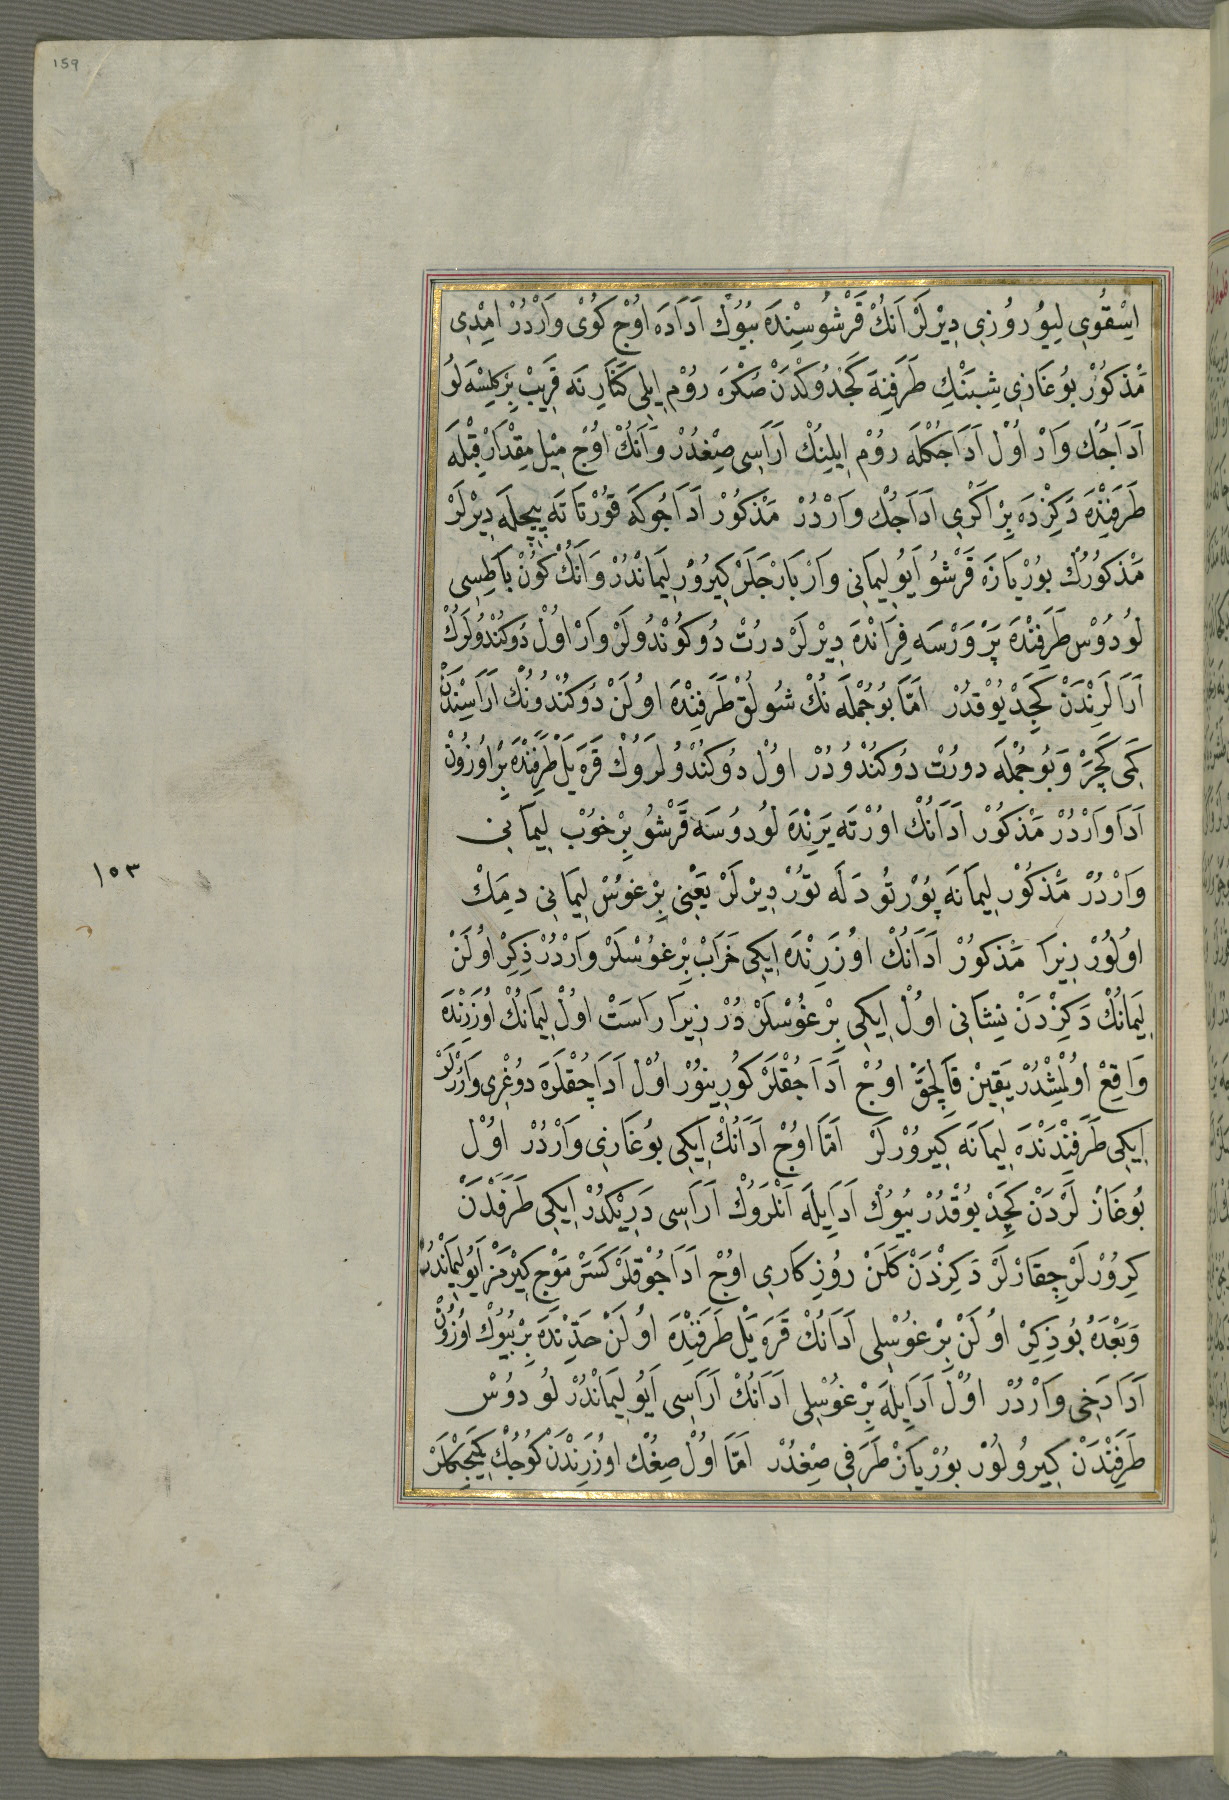 159
اِسْقُوبِي لِيوُرُوزِي دِيْرْلَرْ اَنُكْ قَرْشُوسِنْدَه بُيُوكْ اَدَادَه اُوْجْ كُوْى وَارْدُرْ اِمْدِى
مَذْكُورْ بُوغَازِى شِبِنِكْ طَرَفِنَه كَجْدُوكْدَنْ صَكْرَه رُوْمْ اِيلِى كَنَارِنَه قَرِيبْ بِرْكِلِسَه لُو
اَدَاجُكْ وَارْ اُولْ اَدَاجِكْلَه رُوْمْ اِيلِنِكْ اَرَاسِى صِغْدُرْ وَاَنُكْ اُوْجْ مِيْلْ مِقْدَارْ قِبْلَه
طَرَفِنْدَه دَكِزْدَه بِرْ اَكْرِى اَدَاجُكْ وَارْدُرْ مَذْكُورْ اَدَاجُوكَه قُورْتَاتَه پِيچِلَه دِيْرْلَرْ
مَذْكُورُكْ بُورْيَازَه قَرْشُو اَيُو لِيمَانِى وَارْ بَارْجَلَرْ كِيرُوْرْ لِيمَانْدُرْ وَاَنُكْ كُونْ بَاطِسِى
لُودُوْسْ طَرَفِنْدَه پَرْوَرْسَه فِرَانْدَه دِيْرْلَرْ دُرْتْ دُوكُونْدُولَرْ وَارْ اُولْ دُوكُنْدُولَرُكْ
اَرَالَرِنْدَنْ كَجِدْ يُوْقْدُرْ اَمَّا بُو جُمْلَه نُكْ شُولُقْ طَرَفِنْدَه اُولَنْ دُوكُنْدُونُكْ اَرَاسِنْدَنْ
كَمِى كَچَرْ وَبُو جُمْلَه دُورْتْ دُوكُنْدُودُرْ اُولْ دُوكُنْدُولَرُوكْ قَرَه يَلْ طَرَفِنْدَه بِرْ اُوزُونْ
اَدَا وَارْدُرْ مَذْكُورْ اَدَانُكْ اُورْتَه يَرِنْدَه لُودُوسَه قَرْشُو بِرْ خُوبْ لِيمَانِى
وَارْدُرْ مَذْكُورْ لِيمَانَه پُورْتُو دَلَه تُوْرْ دِيْرْلَرْ يَعْنِى بِرْغُوسْ لِيمَانِى دِمَكْ
اُولُورْ زِيرَا مَذْكُورْ اَدَانُكْ اُوزَرِنْدَه اِيكِى خَرَابْ بِرْغُوسْلَرْ وَارْدُرْ ذِكِرْ اُولَنْ
لِيمَانُكْ دَكِزْدَنْ نِشَانِى اُولْ اِيكِى بِرْغُوسْلَرْ دُرْ زِيرَا رَاسَتْ اُولْ لِيمَانُكْ اُوزَرِنْدَه
وَاقِعْ اُولْمِشْدُرْ يَقِينْ قَالِجَقْ اُوْجْ اَدَاجُقْلَرْ كُورِينُورْ اُولْ اَدَاجُقْلَرَه دُوغْرِى وَارُرْلَرْ
اِيكِى طَرَفِنْدَنْدَه لِيمَانَه كِيرُورْلَرْ اَمَّا اُوْجْ اَدَانُكْ اِيكِى بُوغَازِى وَارْدُرْ اُولْ
بُوغَازْ لَرْدَنْ كَجِدْ يُوقْدُرْ بُيُوكْ اَدَايِلَه اَنْلَرُوكْ اَرَاسِى دَرِيْكْدُرْ اِيكِى طَرَفْدَنْ
كِرُورْلَرْ چِقَارْلَرْ دَكِزْدَنْ كَلَنْ رُوزِكَارِى اُوْجْ اَدَاجُوْقْلَرْ كَسَرْ مَوْجْ كِيْرْمَزْ اَيُو لِيمَانْدُرْ
وَبَعْدَهُ بُو ذِكِرْ اُولَنْ بِرْغُوسْلِى اَدَانُكْ قَرَه يَلْ طَرَفِنْدَه اُولَنْ حَدِّنْدَه بِرْ بُيُوكْ اُوزُونْ
اَدَا دَخِى وَارْدُرْ اُولْ اَدَايِلَه بِرْغُوسْلِى اَدَانُكْ اَرَاسِى اَيُو لِيمَانْدُرْ لُودُوْسْ
طَرَفِنْدَنْ كِيرُولُورْ بُورْيَازْ طَرَفِى صِغْدُرْ اَمَّا اُولْ صِغُكْ اُوزَرِنْدَنْ كُوجُكْ كَمِيجِكْلَرْ
١٥٣